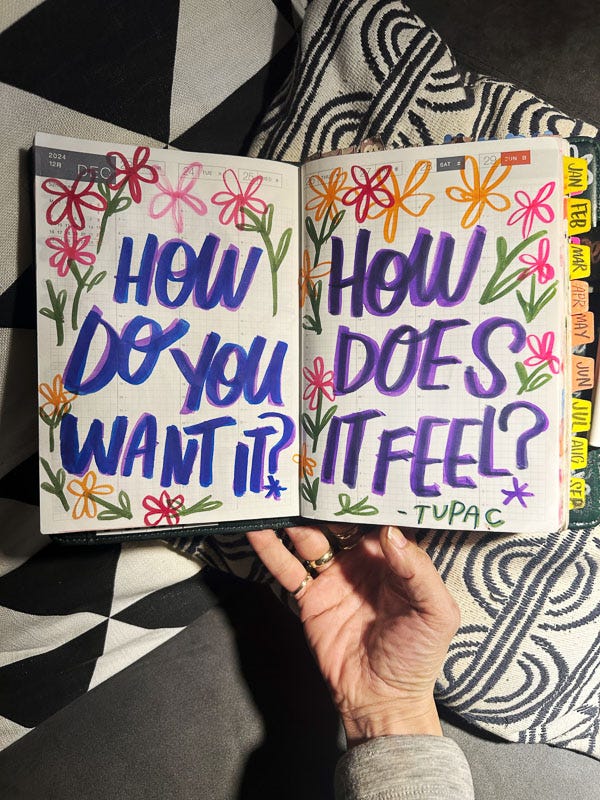 2024
12月
DEC
24 TUE
25 WED
28 SAT 土
29 SUN 日
HOW
DO YOU
WANT IT?
HOW
DOES
IT FEEL?
-TUPAC
JAN
FEB
MAR
APR
MAY
JUN
JUL
AUG
SEP